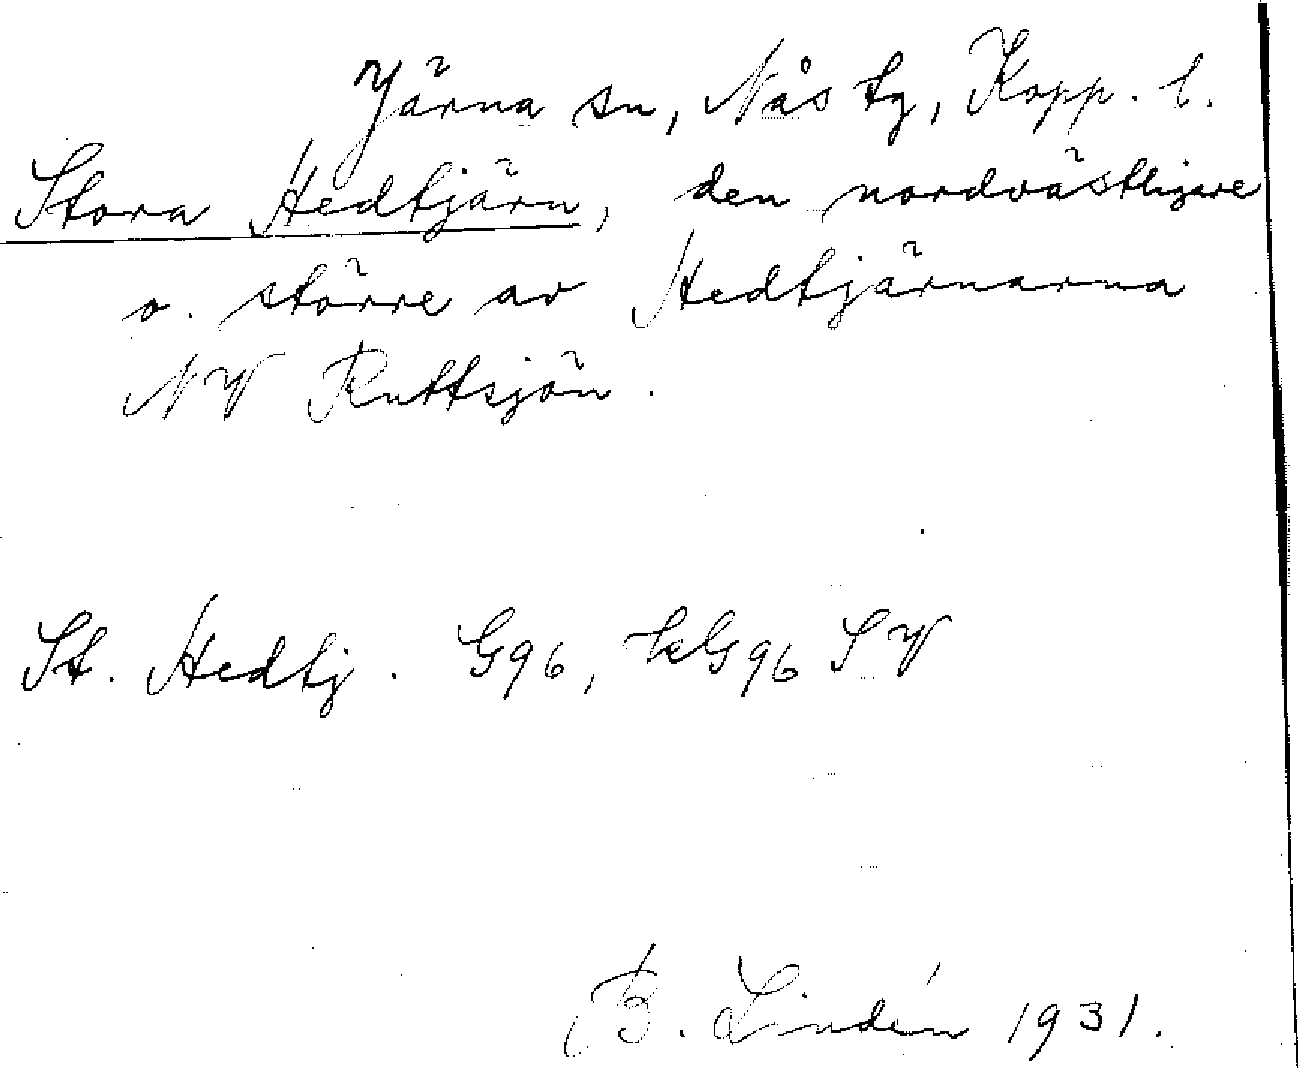 Järna sn, Nås tg, Kopp. l.
Stora Hedtjärn, den nordvästligare
o. större av Hedtjärnarna
NV Ruttsjön.
St. Hedtj. G96, kG96 SV
B. Lindén 1931.